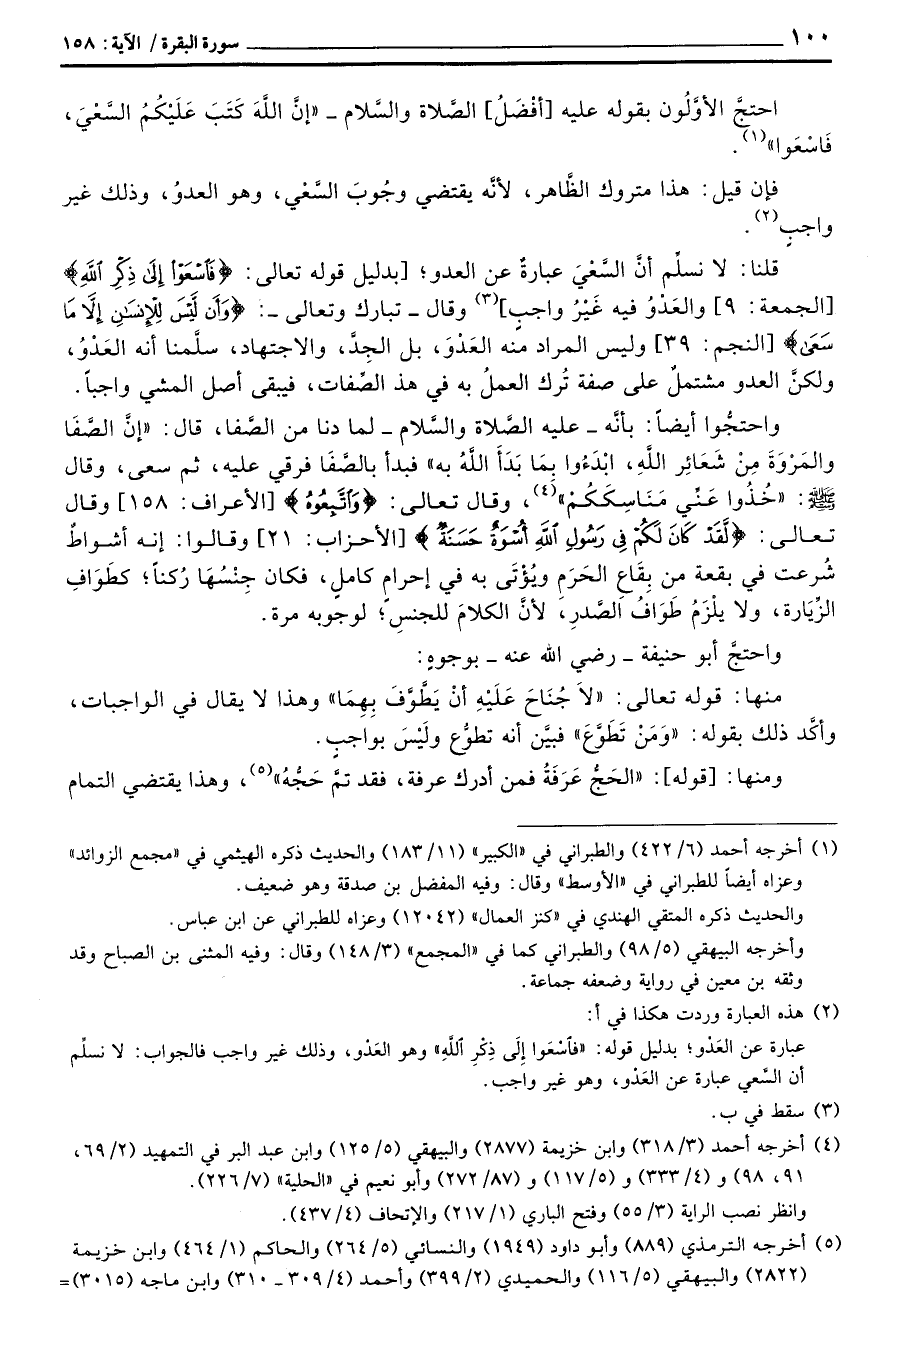 ١٠٠ ــــــــــــــــــــ سورة البقرة / الآية: ١٥٨
احتجَّ الأوَّلُون بقوله عليه [أفْضَلُ] الصَّلاة والسَّلام ـ «إنَّ اللَّهَ كَتَبَ عَلَيْكُمُ السَّعْيَ،
فَاسْعَوا»(١).
فإن قيل: هذا متروك الظَّاهر، لأنَّه يقتضي وجُوبَ السَّعْي، وهو العدوُ، وذلك غير
واجبٍ(٢).
قلنا: لا نسلِّم أنَّ السَّعْيَ عبارةٌ عن العدو؛ [بدليل قوله تعالى: ﴿فَٱسْعَوْا۟ إِلَىٰ ذِكْرِ ٱللَّهِ﴾
[الجمعة: ٩] والعَدْوُ فيه غَيْرُ واجبٍ](٣) وقال ـ تبارك وتعالى ـ: ﴿وَأَن لَّيْسَ لِلْإِنسَٰنِ إِلَّا مَا
سَعَىٰ﴾ [النجم: ٣٩] وليس المراد منه العَدْوَ، بل الجِدَّ، والاجتهاد، سلَّمنا أنه العَدْوُ،
ولكنَّ العدو مشتملٌ على صفة تُرك العملُ به في هذ الصِّفات، فيبقى أصل المشي واجباً.
واحتجُّوا أيضاً: بأنَّه ـ عليه الصَّلاة والسَّلام ـ لما دنا من الصَّفا، قال: «إنَّ الصَّفَا
والمَرْوَةَ مِنْ شَعَائِر اللَّهِ، ابْدَءُوا بِمَا بَدَأَ اللَّهُ به» فبدأ بالصَّفَا فرقي عليه، ثم سعى، وقال
ﷺ: «خُذُوا عَنِّي مَنَاسِكَكُمْ»(٤)، وقال تعالى: ﴿وَٱتَّبِعُوهُ﴾ [الأعراف: ١٥٨] وقال
تعالى: ﴿لَّقَدْ كَانَ لَكُمْ فِى رَسُولِ ٱللَّهِ أُسْوَةٌ حَسَنَةٌ﴾ [الأحزاب: ٢١] وقالوا: إنه أشواطٌ
شُرعت في بقعة من بِقَاعِ الحَرَمِ ويُؤْتَى به في إحرامٍ كاملٍ، فكان جِنْسُهَا رُكناً؛ كطَوَافِ
الزِّيَارة، ولا يلْزَمُ طَوَافُ الصَّدرِ، لأنَّ الكلامَ للجنسِ؛ لوجوبه مرة.
واحتجَّ أبو حنيفة ـ رضي الله عنه ـ بوجوهٍ:
منها: قوله تعالى: «لاَ جُنَاحَ عَلَيْهِ أنْ يَطَّوَّفَ بِهِمَا» وهذا لا يقال في الواجبات،
وأكَّد ذلك بقوله: «وَمَنْ تَطَوَّعَ» فبيَّن أنه تطوُّع ولَيْسَ بواجبٍ.
ومنها: [قوله]: «الحَجُّ عَرَفَةُ فمن أدرك عرفة، فقد تمَّ حَجُّهُ»(٥)، وهذا يقتضي التمام
(١) أخرجه أحمد (٦/ ٤٢٢) والطبراني في «الكبير» (١١/ ١٨٣) والحديث ذكره الهيثمي في «مجمع الزوائد»
وعزاه أيضاً للطبراني في «الأوسط» وقال: وفيه المفضل بن صدقة وهو ضعيف.
والحديث ذكره المتقي الهندي في «كنز العمال» (١٢٠٤٢) وعزاه للطبراني عن ابن عباس.
وأخرجه البيهقي (٥/ ٩٨) والطبراني كما في «المجمع» (٣/ ١٤٨) وقال: وفيه المثنى بن الصباح وقد
وثقه بن معين في رواية وضعفه جماعة.
(٢) هذه العبارة وردت هكذا في أ:
عبارة عن العَدْو؛ بدليل قوله: «فاسْعَوا إِلَى ذِكْرِ اللَّهِ» وهو العَدْو، وذلك غير واجب فالجواب: لا نسلِّم
أن السَّعي عبارة عن العَدْو، وهو غير واجب.
(٣) سقط في ب.
(٤) أخرجه أحمد (٣/ ٣١٨) وابن خزيمة (٢٨٧٧) والبيهقي (٥/ ١٢٥) وابن عبد البر في التمهيد (٢/ ٦٩،
٩١، ٩٨) و (٤/ ٣٣٣) و (٥/ ١١٧) و (٨٧/ ٢٧٢) وأبو نعيم في «الحلية» (٧/ ٢٢٦).
وانظر نصب الراية (٣/ ٥٥) وفتح الباري (١/ ٢١٧) والإتحاف (٤/ ٤٣٧).
(٥) أخرجه الترمذي (٨٨٩) وأبو داود (١٩٤٩) والنسائي (٥/ ٢٦٤) والحاكم (١/ ٤٦٤) وابن خزيمة
(٢٨٢٢) والبيهقي (٥/ ١١٦) والحميدي (٢/ ٣٩٩) وأحمد (٤/ ٣٠٩ ـ ٣١٠) وابن ماجه (٣٠١٥)=